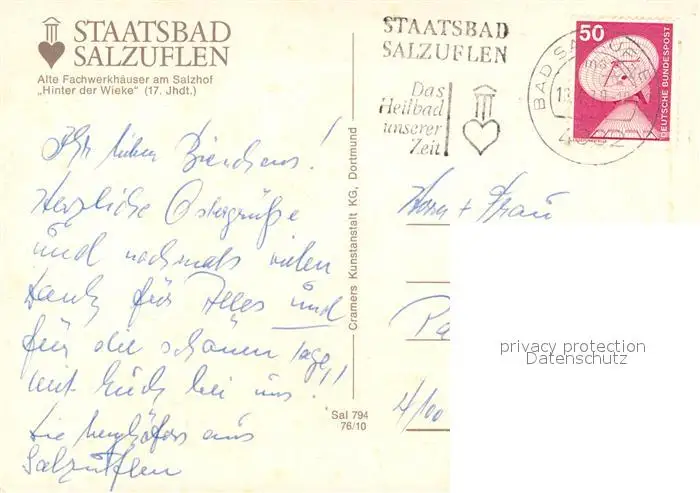 STAATSBAD
SALZUFLEN
Alte Fachwerkhäuser am Salzhof
„Hinter der Wieke" (17. Jhdt.)
STAATSBAD
SALZUFLEN
Das
Heilbad
unserer
Zeit
BAD SALZUFLEN
50
DEUTSCHE BUNDESPOST
Ihr lieben
Herzliche Ostergrüße
und nochmals vielen
Dank für Alles und
für die schönen Tage,
mit Euch bei uns!
Die aus
Salzuflen
Cramers Kunstanstalt KG, Dortmund
Sal 794
76/10
Herrn + Frau
privacy protection
Datenschutz